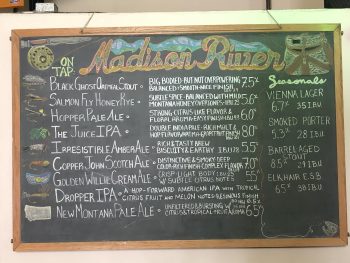 ON TAP
Madison River
Black Ghost Oatmeal Stout • Big bodied but not overpowering 7.5%
Balanced & smooth nice finish
Salmon Fly Honey Rye • Subtle spice balanced with 5.6%
Montana honey overtones
Hopper Pale Ale • Strong citrus like flavor &
floral aroma easy finish
The Juice IPA • Double India Pale - rich malt & 8.0%
hop flavor
Irresistible Amber Ale • Rich & tasty brew 5.5%
Biscuity & earthy
Copper John Scotch Ale • Distinctive & smoky deep
color rich finish complex flavor
Golden Willie Cream Ale • Crisp light body
w/ subtle citrus notes 5.5
Dropper IPA • A hop-forward American IPA with tropical
citrus fruit and melon notes resinous finish
New Montana Pale Ale • Unfiltered & bursting w/
citrus & tropical fruit aroma
Seasonals
Vienna Lager
6.7% 35 IBU
Smoked Porter
5.3% 28 IBU
Barrel Aged
Stout
8.5% 29 IBU
Elk Hair E.S.B
6.5% 38 IBU